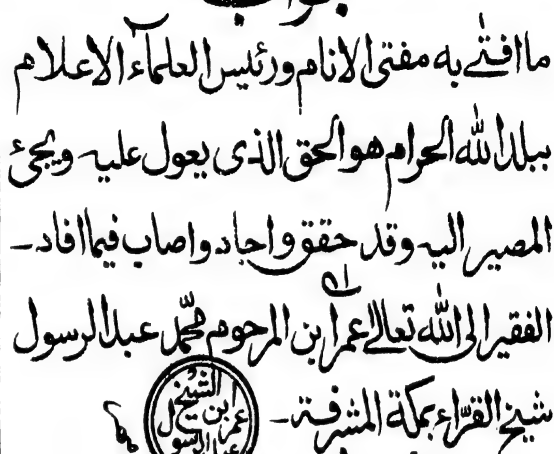 جواب
ما افتے به مفتى الانام ورئيس العلماء الاعلام
ببلد الله الحرام هو الحق الذى يعول عليه ويجئ
المصير اليه وقد حقق واجاد واصاب فيما افاد ـ
الفقير الى الله تعالے عمر ابن المرحوم محمّد عبد الرسول
شيخ القرّاء بمكة المشرفة ـ
الشيخ
عمر بن
عبد الرسول